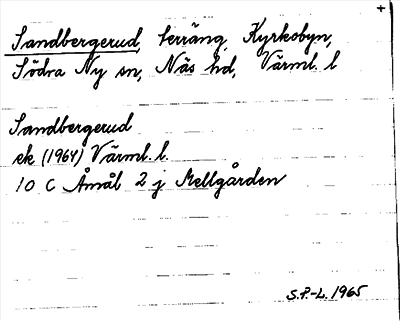 +
Sandbergerud, terräng, Kyrkobyn,
Södra Ny sn, Näs hd, Värml. l
Sandbergerud
ek (1964) Värml. l.
10 C Åmål 2 j Mellgården
S.P.-L. 1965